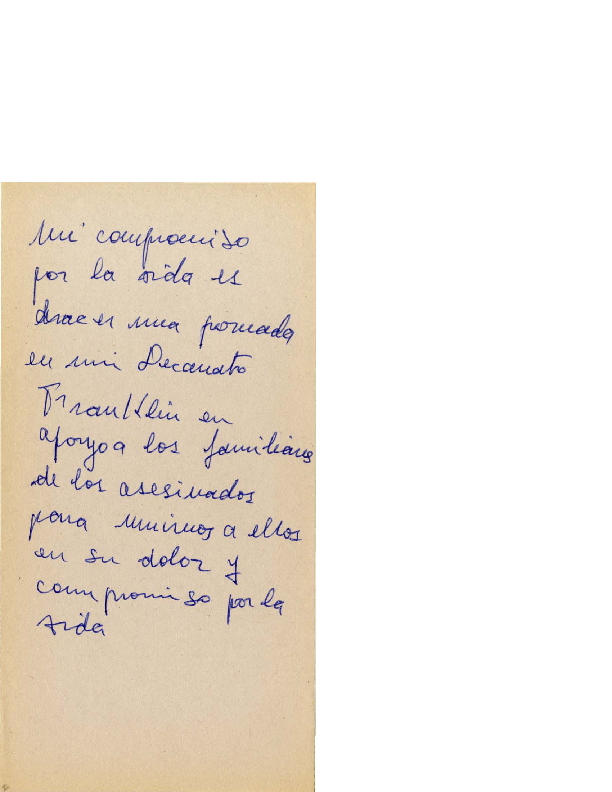 Mi compromiso
por la vida es
hacer una jornada
en mi Decanato
Franklin en
apoyo a los familiares
de los asesinados
para unirnos a ellos
en su dolor y
compromiso por la
vida